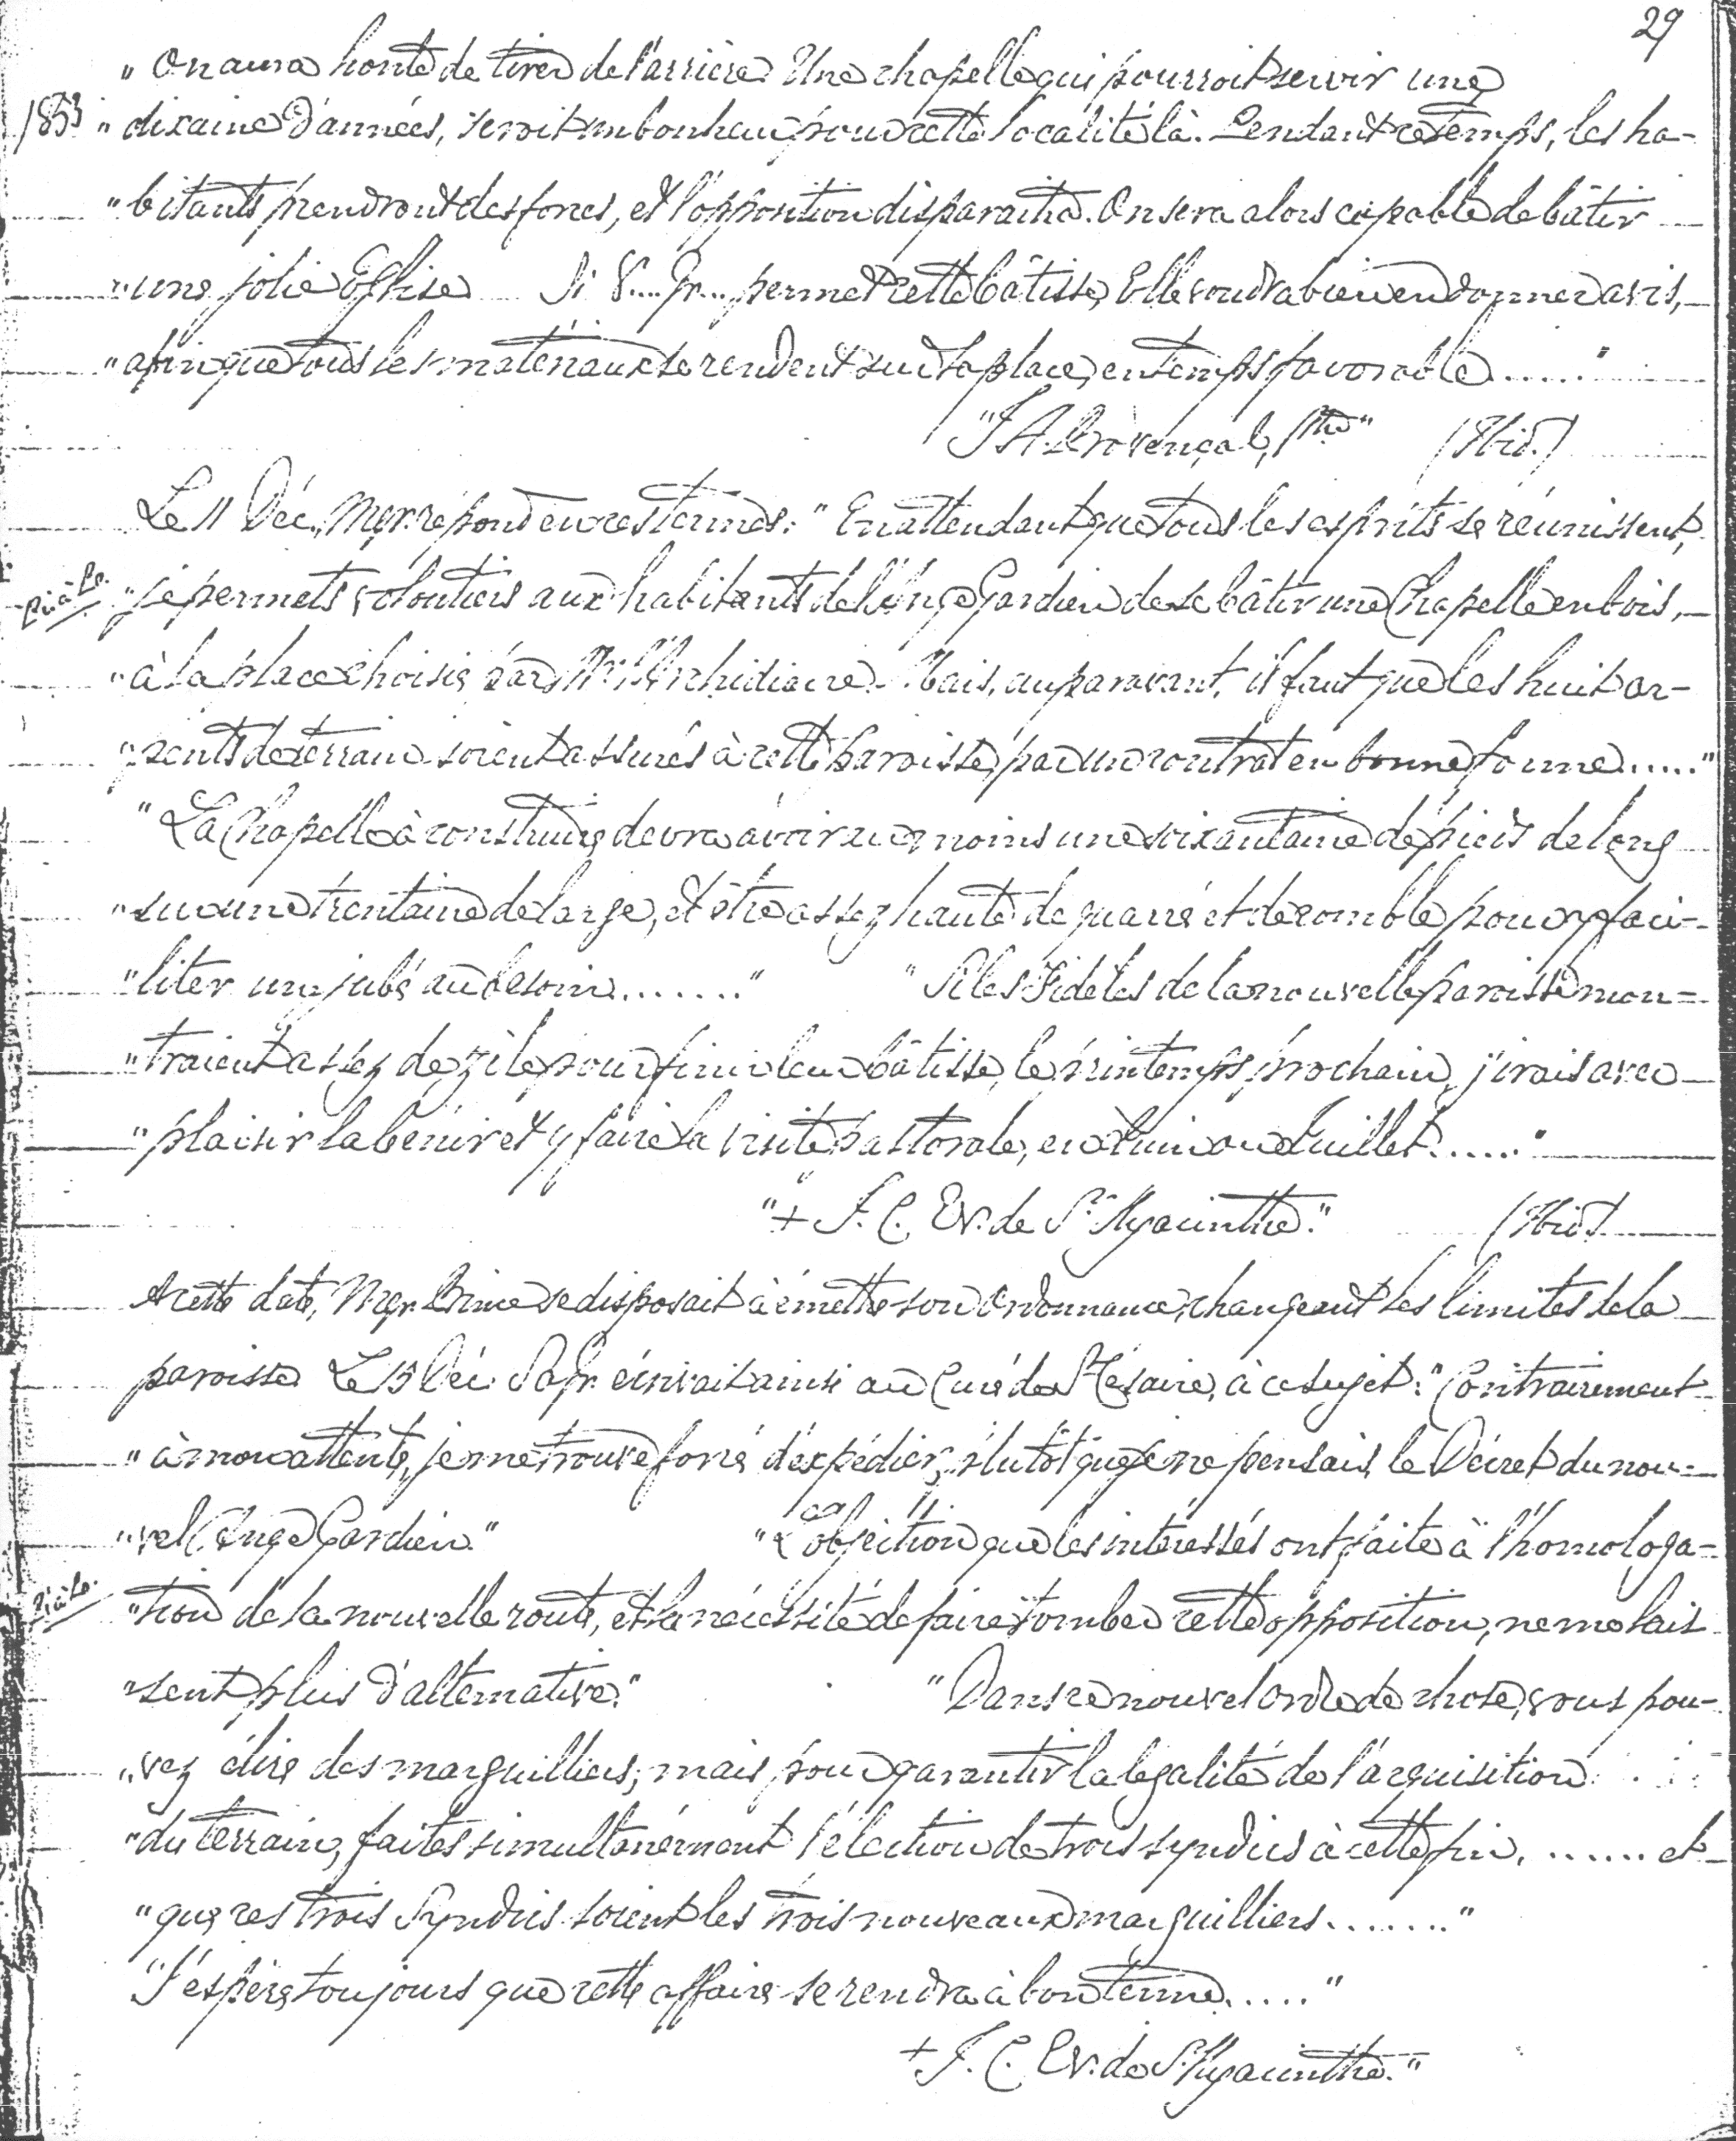 29
" On aura honte de tirer de l'arrière. Une chapelle qui pourroit servir une
1853 " dixaine d'années, seroit un bonheur pour cette localité là. Pendant ce temps, les ha-
" bitants prendront des forces, et l'opposition disparaitra. On sera alors capable de bâtir
" une jolie Eglise Si V.... Gr... permet cette bâtisse, Elle voudra bien en donner avis,
" afin que tous les matériaux se rendent sur la place, en temps favorable ...... "
"J A Provençal, Ptre" (Ibid.)
Le 11 Déc, Mgr. répond en ces termes: " En attendant que tous les esprits se réunissent,
" je permets volontiers aux habitants de l'Ange Gardien de se bâtir une Chapelle en bois,
" à la place choisie par Mr. l'Archidiacre. Mais, auparavant, il faut que les huit ar-
" pents de terrain soient assurés à cette paroisse, par un contrat en bonne forme ......"
" La Chapelle à construire devra avoir au moins une soixantaine de pieds de long
" sur une trentaine de large, et être assez haute de quarré et de comble pour y faci-
" liter un jubé au besoin ......." " Si les Fidèles de la nouvelle paroisse mon=
" traient assez de zèle pour finir leur bâtisse, le printemps prochain, j'irais avec
" plaisir la bénir et y faire la visite pastorale, en Juin ou Juillet ...... "
"+ J. C. Ev. de St. Hyacinthe." (Ibid)
A cette date, Mgr. Prince se disposait à émettre son Ordonnance, changeant les limites de la
paroisse Le 15 Déc Sa Gr. écrivait ainsi au Curé de St Césaire, à ce sujet: " Contrairement
" à mon attente, je me trouve forcé d'expédier, plutôt que je ne pensais, le Décret du nou=
" vel Ange Gardien." " L'objection que les intéressés ont faite à l'homologa=
" tion de la nouvelle route, et la nécessité de faire tomber cette opposition, ne me lais
" sent plus d'alternative." " Dans ce nouvel ordre de chose, vous pou-
" vez élire des marguilliers; mais, pour garantir la légalité de l'acquisition
" du terrain, faites simultanément l'élection de trois syndics à cette fin, ...... et
" que ces trois Syndics soient les trois nouveaux marguilliers ......."
" J'espère toujours que cette affaire se rendra à bon terme ....."
+ J. C. Ev. de St. Hyacinthe."